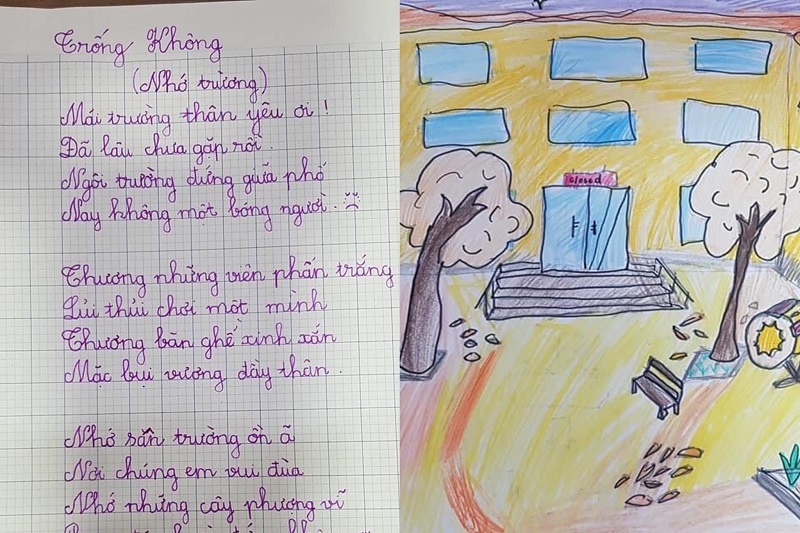 Trống Không
(Nhớ trường)
Mái trường thân yêu ơi !
Đã lâu chưa gặp rồi .
Ngôi trường đứng giữa phố
Nay không một bóng người .
Thương những viên phấn trắng
Lủi thủi chơi một mình
Thương bàn ghế xinh xắn
Mặc bụi vương đầy thân .
Nhớ sân trường ồn ã
Nơi chúng em vui đùa
Nhớ những cây phượng vĩ
closed